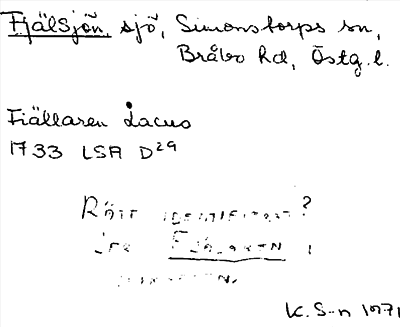 Fjälsjön, sjö, Simonstorps sn,
Bråbo hd, Östg. l.
Fiällaren Lacus
1733 LSA D29
Rätt identifierat?
Jfr Fjälaren i
K. S-n 1971